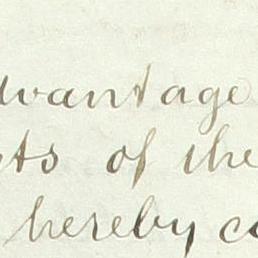 dvantage
ts of the
hereby co